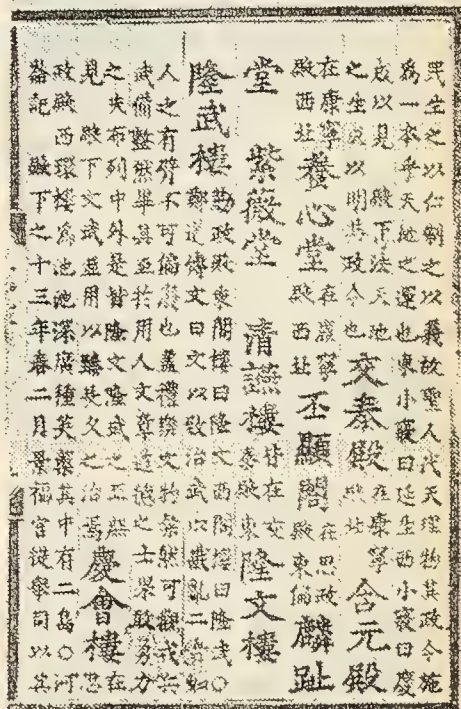 民生之以仁制之以義故聖人代天理物其政令施
爲一本乎天地之運也東小寢曰延生西小寢曰慶
成以見 殿下法天地
之生成以明其政令也 交泰殿 在康寧殿北 含元殿
在康寧殿西北 養心堂 在康寧殿西北 丕顯閣 在思政殿東偏 麟趾
堂 紫薇堂 清讌樓 皆在交泰殿東 隆文樓
隆武樓 勤政殿東閣樓曰隆文西閣樓曰隆武○
鄭道傳文曰文以致治武以戡亂二者如
人之有臂不可偏廢也蓋禮樂文物粲然可觀戎兵
武備整然畢具至於用人文章道德之士果敢勇力
之夫布列中外是皆隆文隆武之至
見 殿下文武並用以臻長久之治焉 慶會樓 在思
政殿西環樓爲池池深廣種芙蕖其中有二島○河
崙記 殿下之十三年春二月景福宮提擧司以其